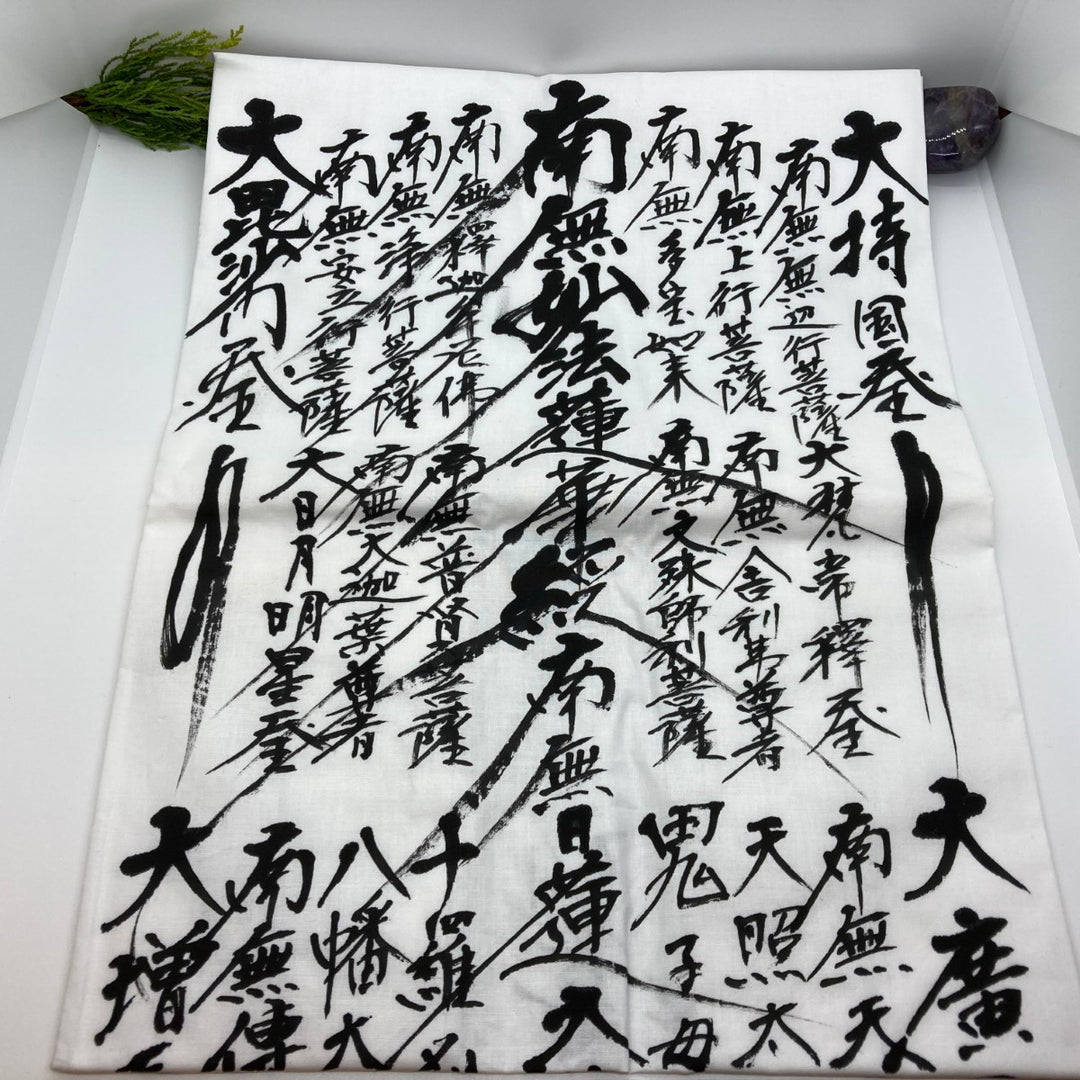 大持国天王
南無無辺行菩薩
南無上行菩薩
南無多宝如来
南無妙法蓮華経
南無釋迦牟尼佛
南無浄行菩薩
南無安立行菩薩
大毘沙門天王
大梵帝釋天王
南無舎利弗尊者
南無文殊師利菩薩
南無普賢菩薩
南無大迦葉尊者
大日月明星天王
大廣
南無天
天照太
鬼子母
南無日蓮大
十羅
八幡大
南無傳
大増